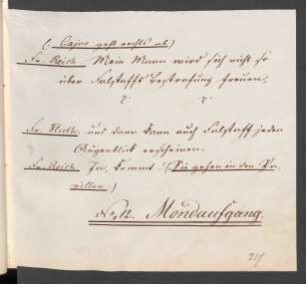 (Cajus geht rechts ab.)
Fr. Reich. Mein Mann wird sich nicht so
über Falstaffs Bestrafung freuen,
Fr. Fluth. und dann kann auch Falstaff jeden
Augenblick erscheinen.
Fr. Reich. Ja, kommt. (Sie gehen in den Pa-
villon.)
Mondaufgang.